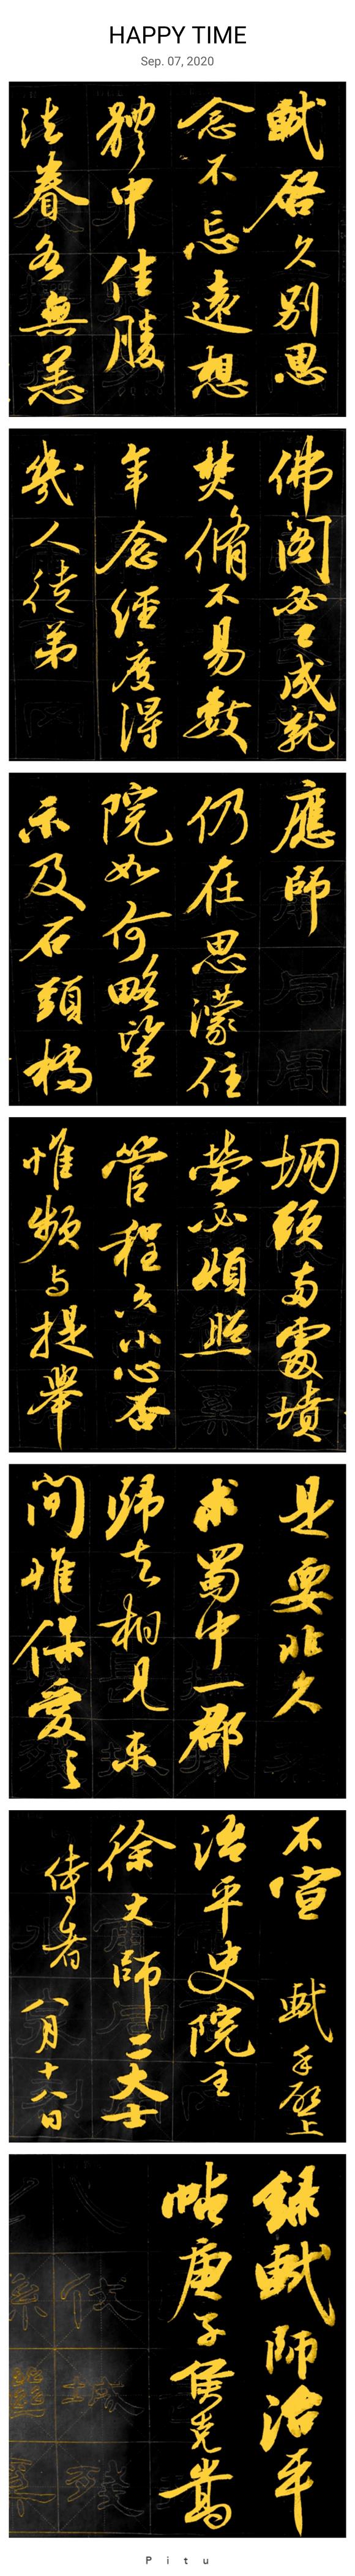 HAPPY TIME
Sep. 07, 2020
軾啓久别思
念不忘遠想
體中佳勝
法眷各無恙
佛阁必已成就
焚脩不易數
年念經度得
幾人徒弟
應師
仍在思濛住
院如何略望
示及石頭橋
堋頭两處墳
塋必煩照
管程六小心否
惟頻与提舉
是要非久
求蜀中一郡
歸去相見未
間惟保愛之
不宣 軾手啓上
治平史院主
徐大師二大士
侍者 八月十八日
錄軾師治平
帖庚子
Pitu